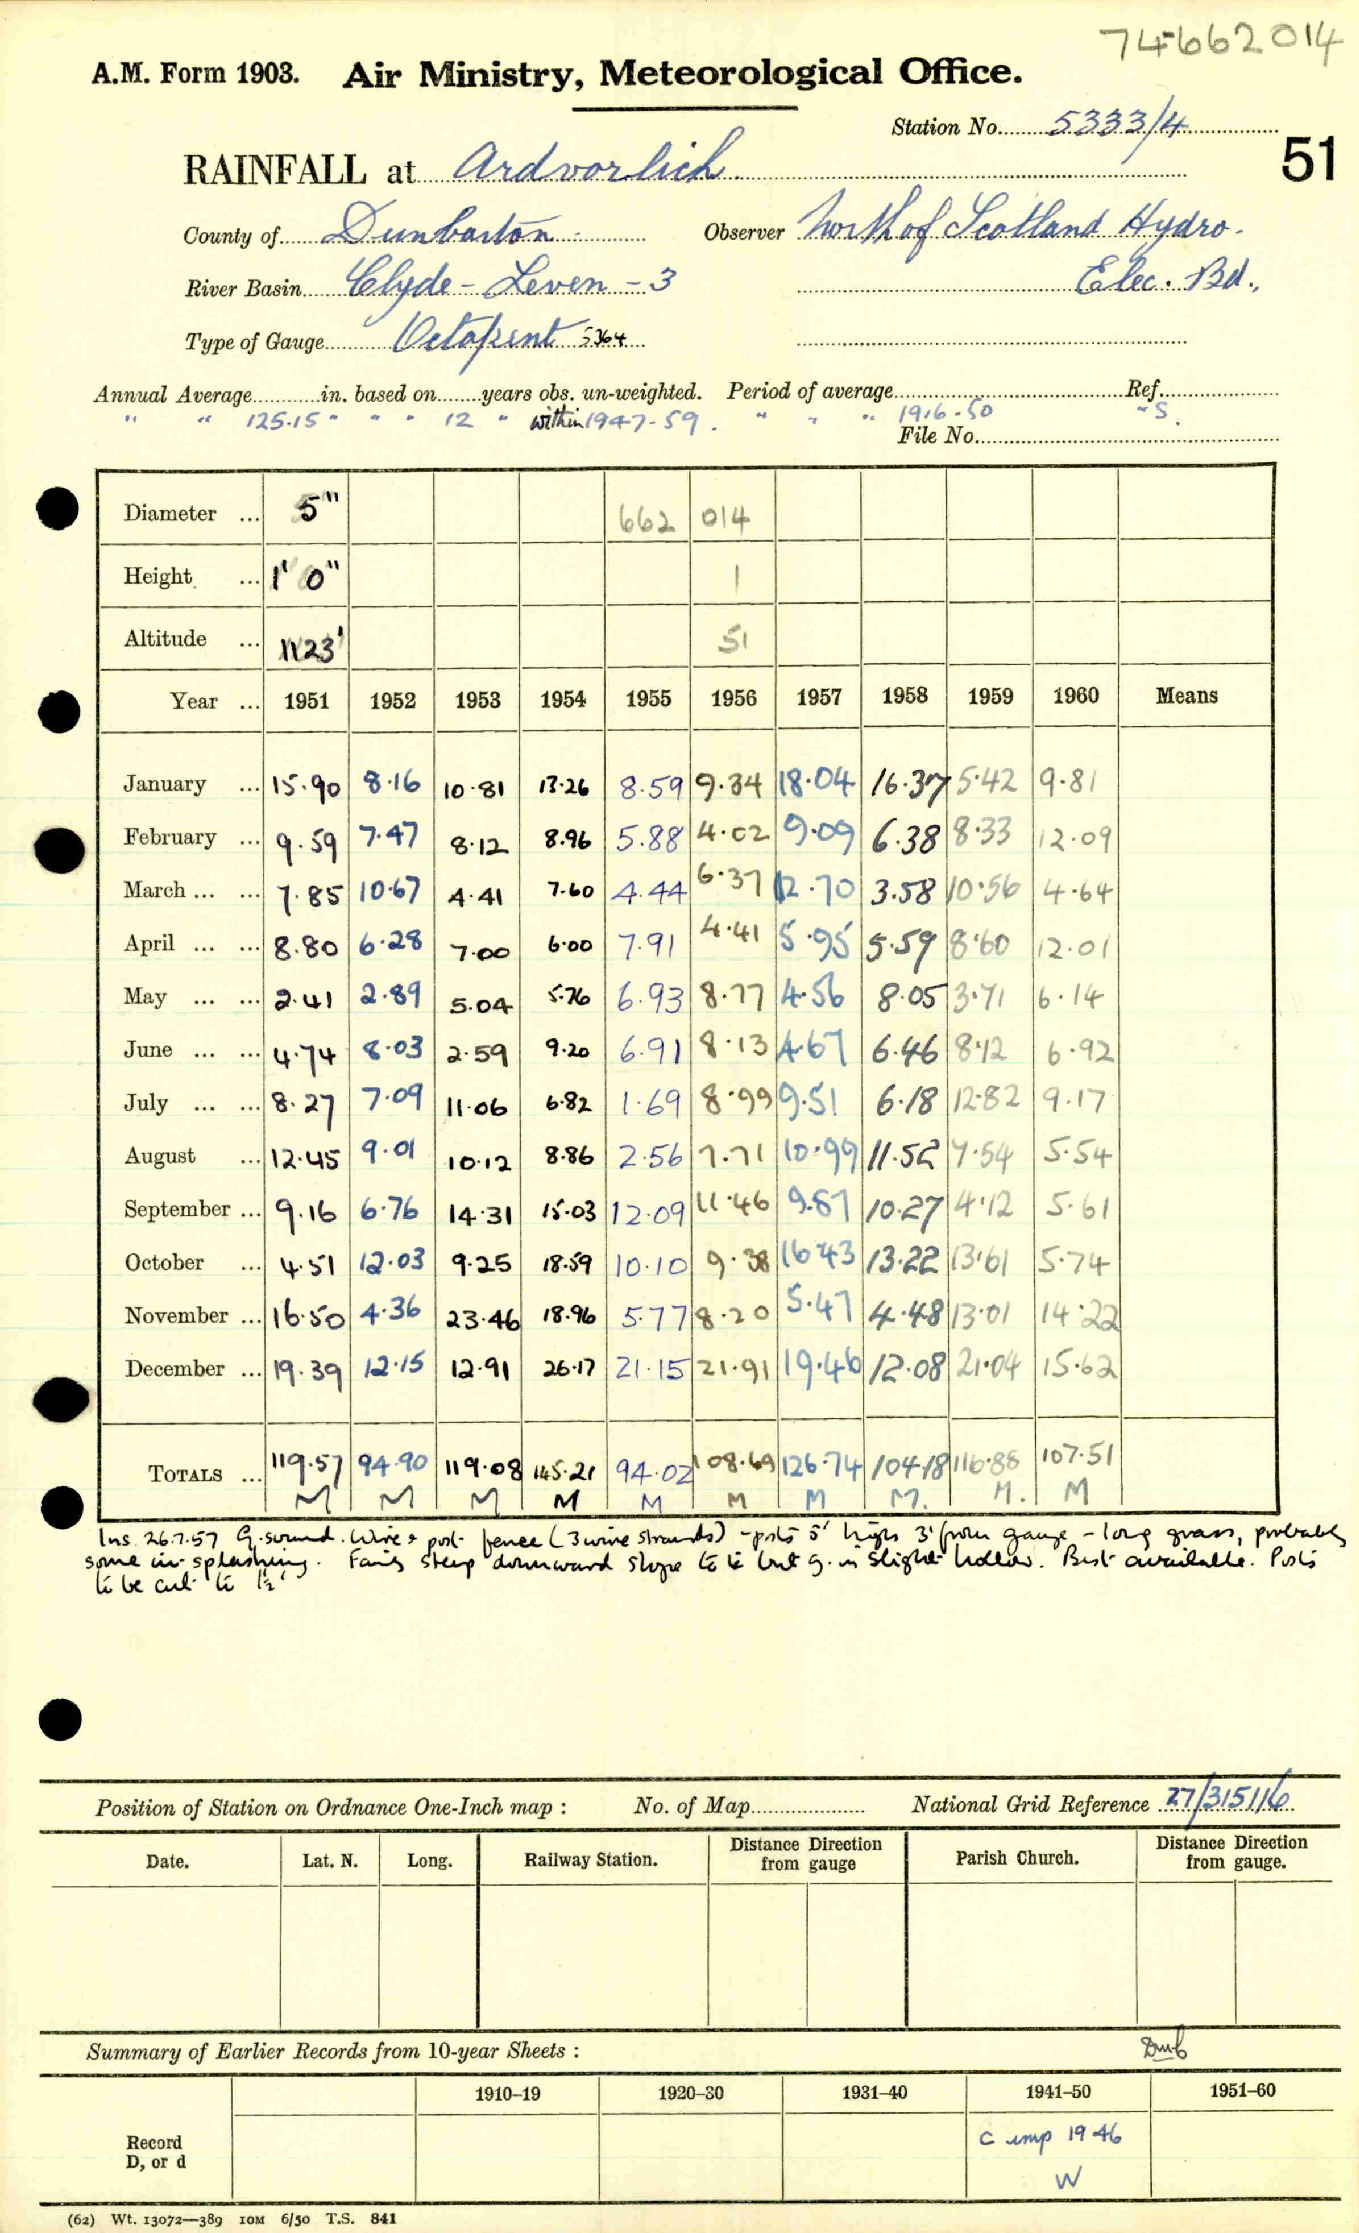 74662014
A.M. Form 1903. Air Ministry, Meteorological Office.
Station No. 5333/4
51
RAINFALL at Ardvorlich.
County of Dunbarton Observer North of Scotland Hydro.
River Basin Clyde - Leven - 3 Elec. Bd.,
Type of Gauge Octapent 5364
Annual Average in. based on years obs. un-weighted. Period of average Ref.
" " 125.15 " " " 12 " within 1947-59. " " " 1916-50 " S.
File No.
Diameter ... 5" 662 014
Height ... 1' 0" 1
Altitude ... 1123' 51
Year ... 1951 1952 1953 1954 1955 1956 1957 1958 1959 1960 Means
January ... 15.90 8.16 10.81 13.26 8.59 9.34 18.04 16.37 5.42 9.81
February ... 9.59 7.47 8.12 8.96 5.88 4.02 9.09 6.38 8.33 12.09
March ... ... 7.85 10.67 4.41 7.60 4.44 6.37 12.70 3.58 10.56 4.64
April ... ... 8.80 6.28 7.00 6.00 7.91 4.41 5.95 5.59 8.60 12.01
May ... ... 2.41 2.89 5.04 5.76 6.93 8.77 4.56 8.05 3.71 6.14
June ... ... 4.74 8.03 2.59 9.20 6.91 8.13 4.67 6.46 8.12 6.92
July ... ... 8.27 7.09 11.06 6.82 1.69 8.99 9.51 6.18 12.82 9.17
August ... 12.45 9.01 10.12 8.86 2.56 7.71 10.99 11.52 7.54 5.54
September ... 9.16 6.76 14.31 15.03 12.09 11.46 9.87 10.27 4.12 5.61
October ... 4.51 12.03 9.25 18.59 10.10 9.38 16.43 13.22 13.61 5.74
November ... 16.50 4.36 23.46 18.96 5.77 8.20 5.47 4.48 13.01 14.22
December ... 19.39 12.15 12.91 26.17 21.15 21.91 19.46 12.08 21.04 15.62
TOTALS ... 119.57 94.90 119.08 145.21 94.02 108.69 126.74 104.18 116.88 107.51
M M M M M M M M. M. M
Ins. 26.7.57 G. sound. Wire & post fence (3 wire strands) - posts 5' high 3' from gauge - long grass, probably
some in-splashing. Fairly steep downward slope to but g. in slight hollow. Best available. Posts
to be cut to 1½'
Position of Station on Ordnance One-Inch map : No. of Map National Grid Reference 27/315116
Date. Lat. N. Long. Railway Station. Distance Direction from gauge Parish Church. Distance Direction from gauge.
Summary of Earlier Records from 10-year Sheets : Dmb
1910–19 1920–30 1931–40 1941–50 1951–60
Record
D, or d
c 1946
W
(62) Wt. 13072—389 10M 6/50 T.S. 841